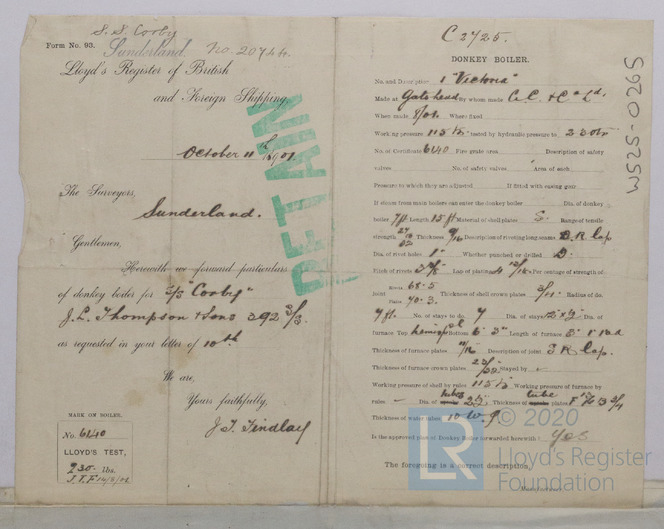 S. S. Corby
Form No. 93. Sunderland. No. 20744
Lloyd's Register of British
and Foreign Shipping,
October 11th 1901
RETAIN
The Surveyors,
Sunderland.
Gentlemen,
Herewith we forward particulars
of donkey boiler for S/S "Corby"
J. L. Thompson & Sons 392 S/S.
as requested in your letter of 10th
We are,
Yours faithfully,
J. T. Findlay
MARK ON BOILER.
No. 6140
LLOYD'S TEST,
230 lbs.
J.T.F
C 2725.
W525-0265
DONKEY BOILER.
No. and Description 1 "Victoria"
Made at Gateshead By whom made C. C. & Co Ld.
When made 8/01 Where fixed
Working pressure 115 lbs tested by hydraulic pressure to 230 lbs
No. of Certificate 6140 Fire grate area Description of safety
valves No. of safety valves Area of each
Pressure to which they are adjusted If fitted with easing gear
If steam from main boilers can enter the donkey boiler Dia. of donkey
boiler 7 ft Length 15 ft Material of shell plates S. Range of tensile
strength 27/32 Thickness 9/16 Description of riveting long seams D. R. lap
Dia. of rivet holes 1" Whether punched or drilled D.
Pitch of rivets Lap of plating Per centage of strength of
joint Rivets 68.5 Plate 70.3. Thickness of shell crown plates Radius of do.
7 ft. No. of stays to do. 7 Dia. of stays Dia. of
furnace Top Bottom 6' 3" Length of furnace
Thickness of furnace plates 11/16 Description of joint S R lap.
Thickness of furnace crown plates Stayed by –
Working pressure of shell by rules 115 lbs Working pressure of furnace by
rules – Dia. of tubes Thickness of tube plates
Thickness of water tubes 10 w.g.
Is the approved plan of Donkey Boiler forwarded herewith Yes
The foregoing is a correct description,
Manufacturer.
LR
© 2020
Lloyd's Register
Foundation